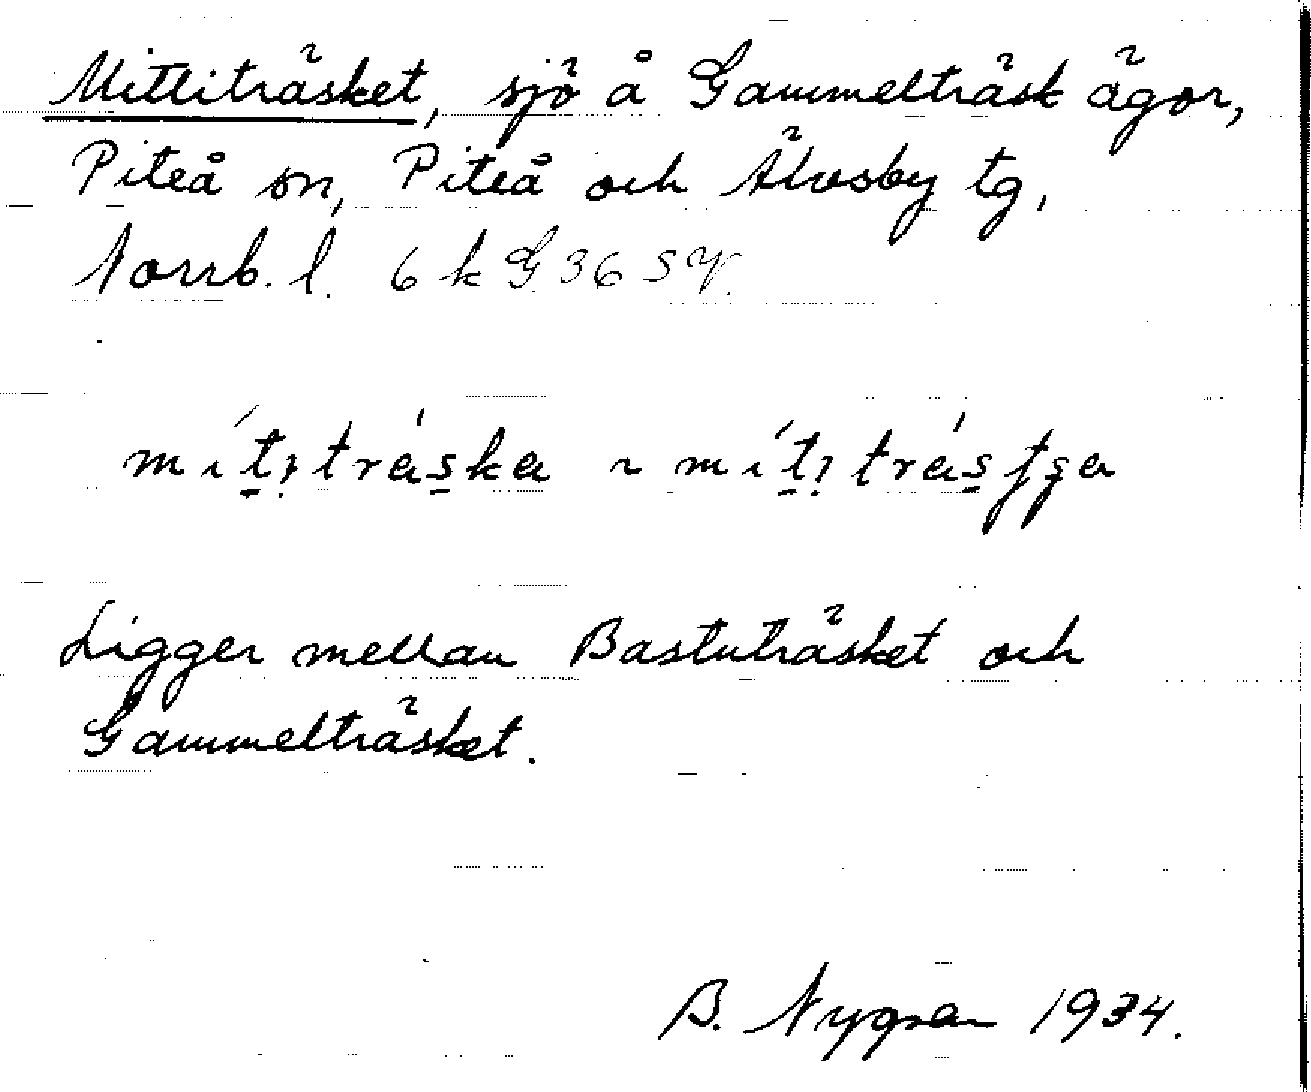 Mittiträsket, sjö å Gammelträsk ägor,
Piteå sn, Piteå och Älvsby tg,
Norrb. l. 6 k G 36 SV.
Ligger mellan Bastuträsket och
Gammelträsket.
B. Nygren 1934.